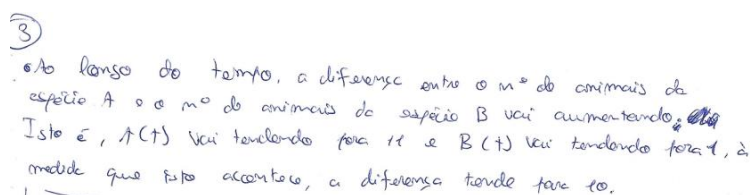 3
• Ao longo do tempo, a diferença entre o nº de animais da
espécie A e o nº de animais da espécie B vai aumentando.
Isto é, A(t) vai tendendo para 11 e B(t) vai tendendo para 1, à
medida que isto acontece, a diferença tende para 10.